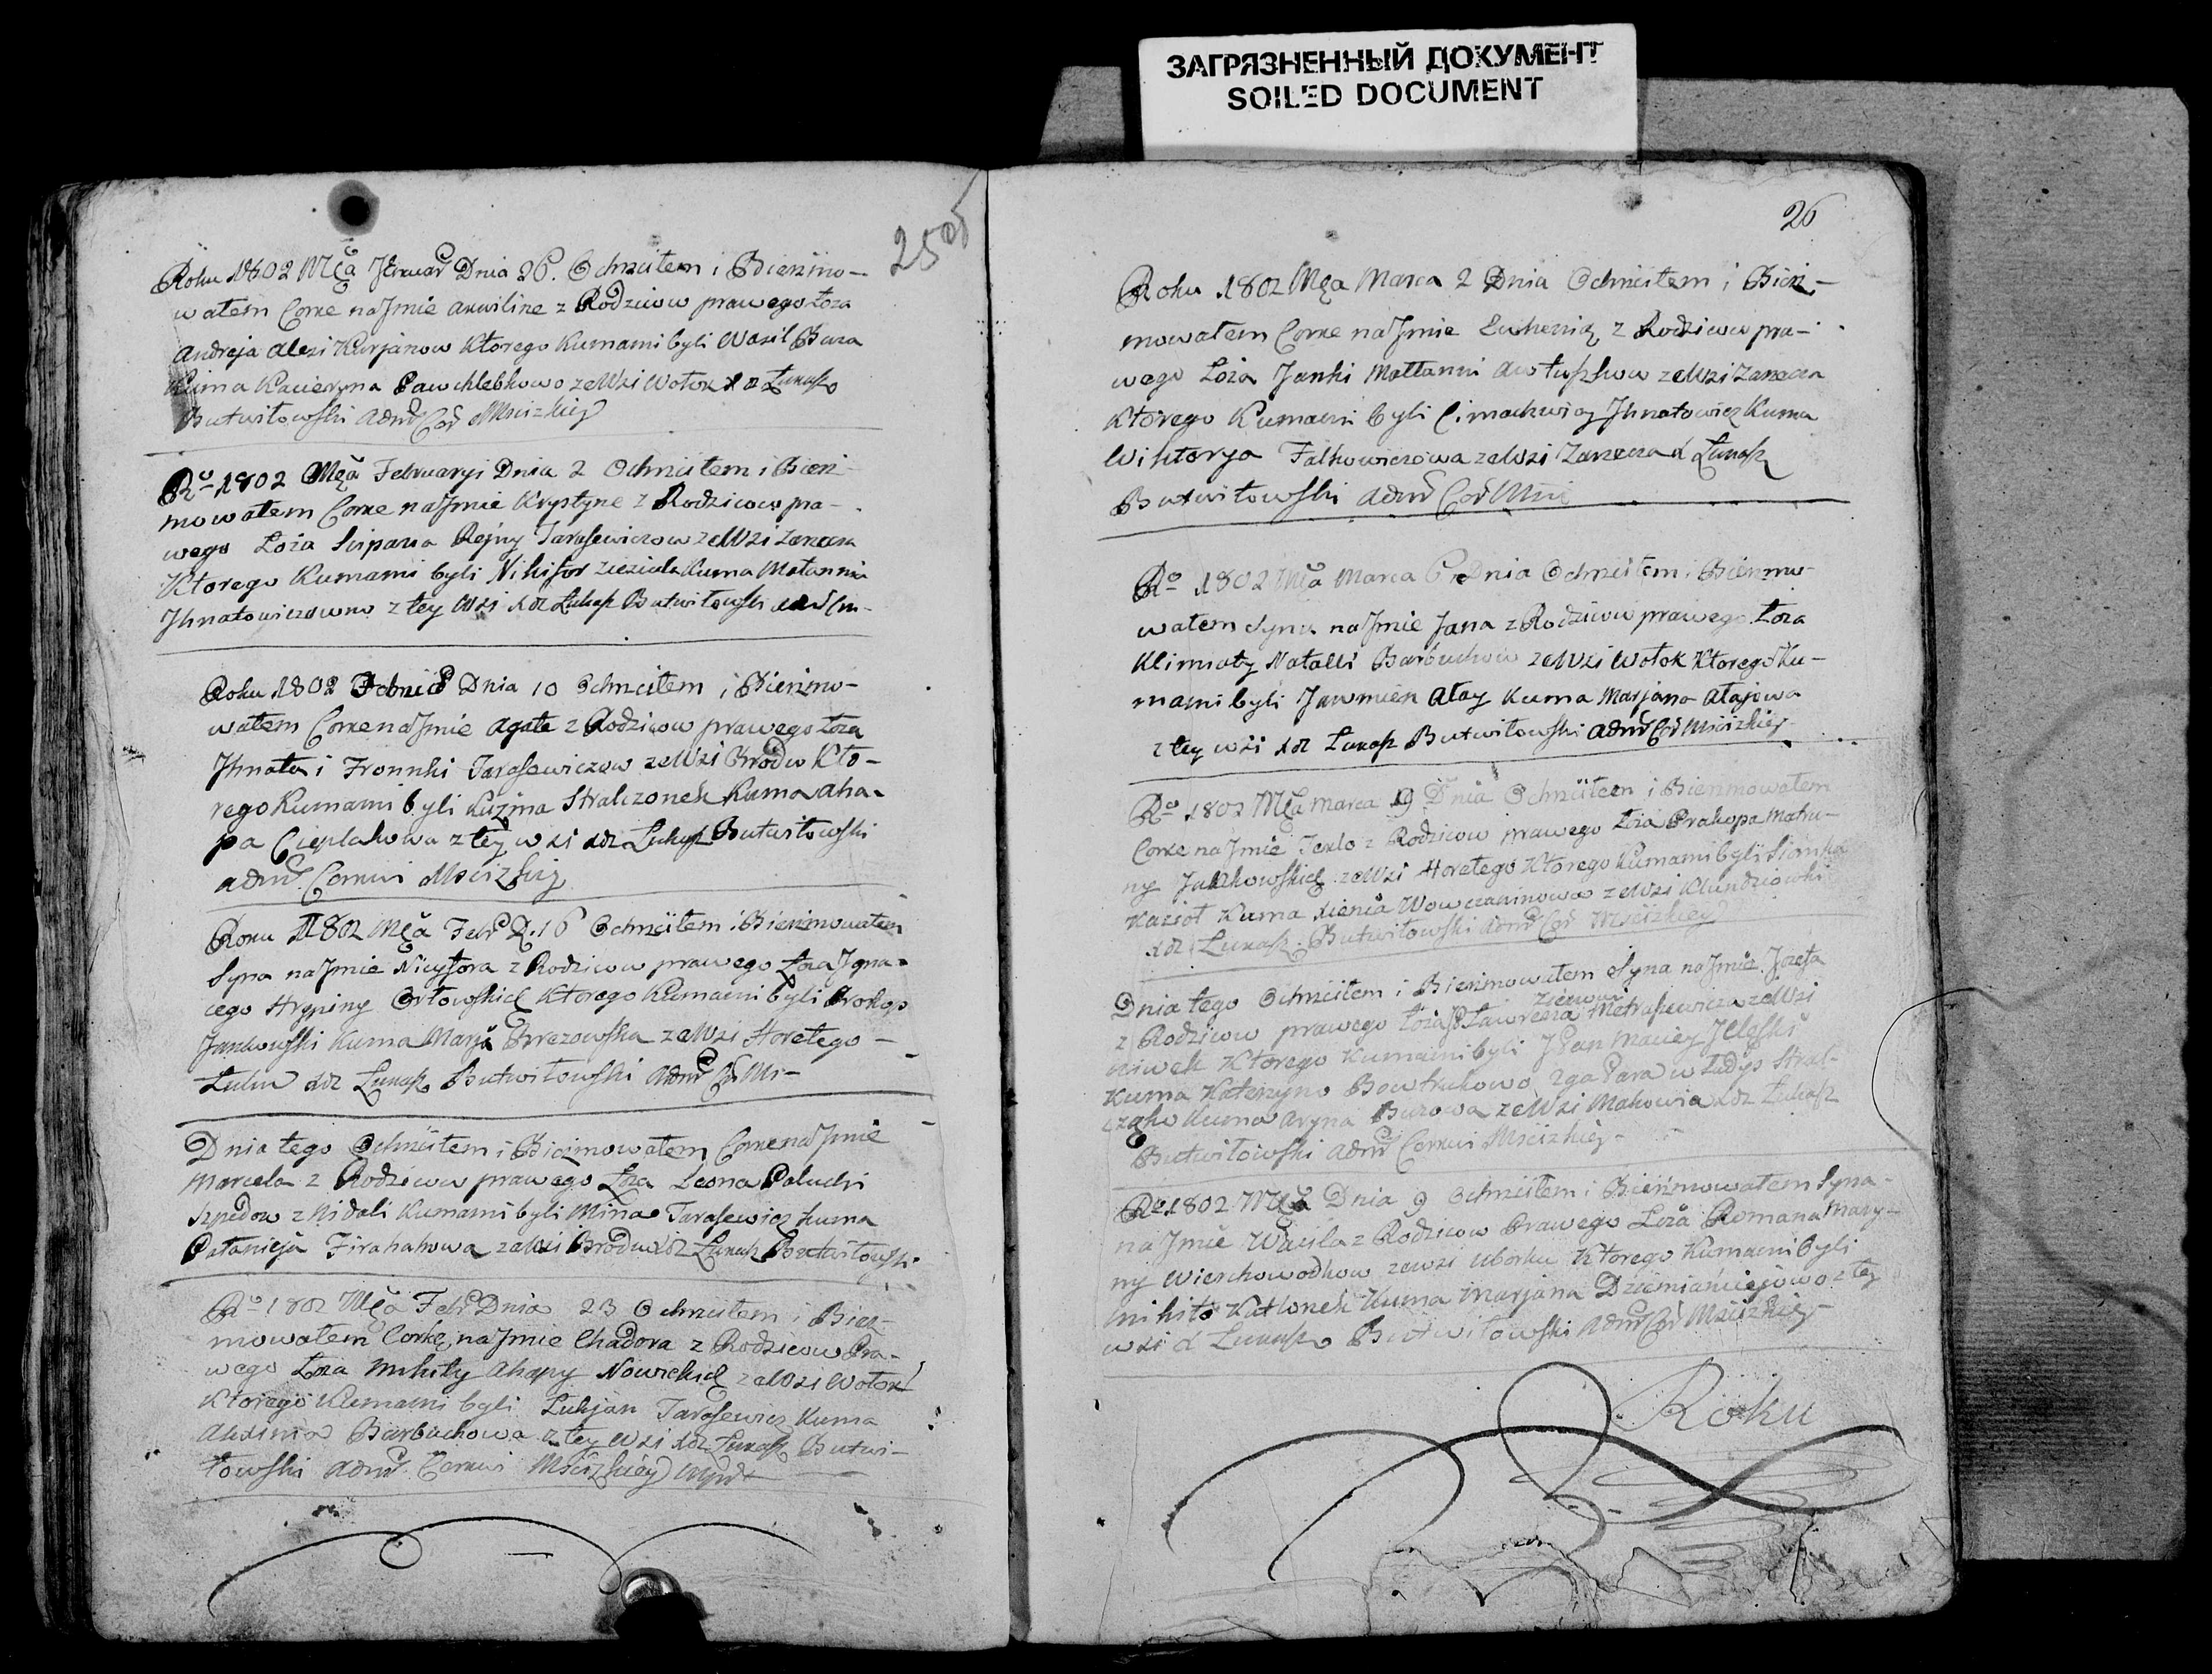 ЗАГРЯЗНЕННЫЙ ДОКУМЕНТ
SOILED DOCUMENT
25 об
Roku 1802 Mca Dnia 26. Ochrzciłem i Bierzmo-
wałem Corke na Jmie Akwiline z Rodzicow prawego Łoża
Andreja Alexi Kurjanow Ktorego Kumami byli Wasil Bura
Kuma Kacieryna Pawchlebkowo ze Wsi Wołok X Łukasz
Butwiłowski Admr Cer Msciżkiey
Ro 1802 Mca Februaryi Dnia 2 Ochrzciłem i Bierz-
mowałem Corke na Jmie Krystyne z Rodzicow pra-
wego Łoża Rejny Tarasewiczow ze Wsi Zarecza
Ktorego Kumami byli Nikifor Kuma Matannia
Jhnatowiczowna z tey Wsi Xdz Łukasz Butwiłowski
Roku 1802 Dnia 10 Ochrzciłem i Bierzmo-
wałem Corke na Jmie Agate z Rodzicow prawego Łoża
Jhnata i Fronnki Tarasewiczow ze Wsi Brodu Kto-
rego Kumami byli Kuzma Stralczonek Kuma Aha-
pa Cieplakowa z tey wsi Xdz Łukasz Butwiłowski
Admr. Cerkwi Msciżkiy
Roku 1802 Mca Febr D. 16 Ochrzciłem i Bierzmowałem
Syna na Jmie Nicyfora z Rodzicow prawego Łoża Jgna-
cego Hrypiny Orłowskich Ktorego Kumami byli Prokop
Jankowski Kuma Marja Brezowska ze Wsi Horełego
Xdz Łukasz Butwiłowski Admr Cer Ms-
Dnia tego Ochrzciłem i Bierzmowałem Corke na Jmie
Marcela z Rodzicow prawego Łoża Leona Paluchi
Szpedow z Nidali Kumami byli Mina Tarasewicz Kuma
Pałanieja Firahahowa ze Wsi Brodu Xdz Łukasz Butwiłowski
Ro 1802 Mca Febr Dnia 23 Ochrzciłem i Bierz-
mowałem Corkę na Jmie Chadora z Rodzicow Pra-
wego Łoża Mikity Ahapy Nowickich ze Wsi Wołok
Ktorego Kumami byli Łukjan Tarasewicz Kuma
Axinia Barbuchowa z tey Wsi Xdz Łukasz Butwi-
łowski Admr. Cerkwi Msciżkiey
26
Roku 1802 Mca Marca 2 Dnia Ochrzciłem i Bierz-
mowałem Corke na Jmie Euhenią z Rodzicow pra-
wego Łoża Janki Mattanni ze Wsi Zarecza
Ktorego Kumami byli Jhnatowicz Kuma
Wiktorya Falkowiczowa ze Wsi Zarecza X Łukasz
Butwiłowski Admr Cer Msci
Ro 1802 Mca Marca 6 Dnia Ochrzciłem i Bierzmo-
wałem Syna na Jmie Jana z Rodzicow prawego Łoża
Klimiaty Natalli Barbuchow ze Wsi Wołok Ktorego Ku-
mami byli Jawmien Ałay Kuma Marjana Ałajowa
z tey wsi Xdz Łukasz Butwiłowski Admr Cer Msciżkiey
Ro 1802 Mca Marca 9 Dnia Ochrzciłem i Bierzmowałem
Corke na Jmie Tekle z Rodzicow prawego Łoża Prakopa Matru-
ny Jankowskich ze Wsi Horełego Ktorego Kumami byli
Kazioł Kuma Xienia Wowczaninowa ze Wsi
Xdz Łukasz Butwiłowski Admr Cer Msciżkiey
Dnia tego Ochrzciłem i Bierzmowałem Syna na Jmie Jozefa
z Rodzicow prawego Łoża Ławrena Mitraszewicza ze Wsi
Ktorego Kumami byli JPan Maciey Jeleński
Kuma Kateryna Bowtrukowo 2ga Para Władys Stral-
czonek Kuma Aryna Burowa ze Wsi Makowia Xdz Łukasz
Butwiłowski Admr Cerkwi Msciżkiey
Ro 1802 Mca Dnia 9 Ochrzciłem i Bierzmowałem Syna
na Jmie Wasila z Rodzicow Prawego Łoża Romana Mary-
ny Wierchowodkow ze wsi Uborku Ktorego Kumami byli
Mikita Kuma Marjana Dziemianciejowo z tey
wsi X Łukasz Butwiłowski Admr Cer Msciżkiey
Roku